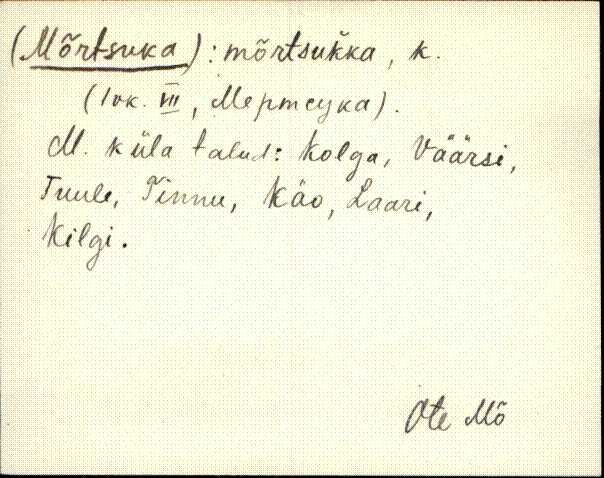 (Mõrtsuka) : mõrtsukka, k.
(1vk. VII, Мертсука).
M. küla talud: Kolga, Väärsi,
Tuule, Tinnu, Käo, Laari,
Kilgi.
Ote Mõ